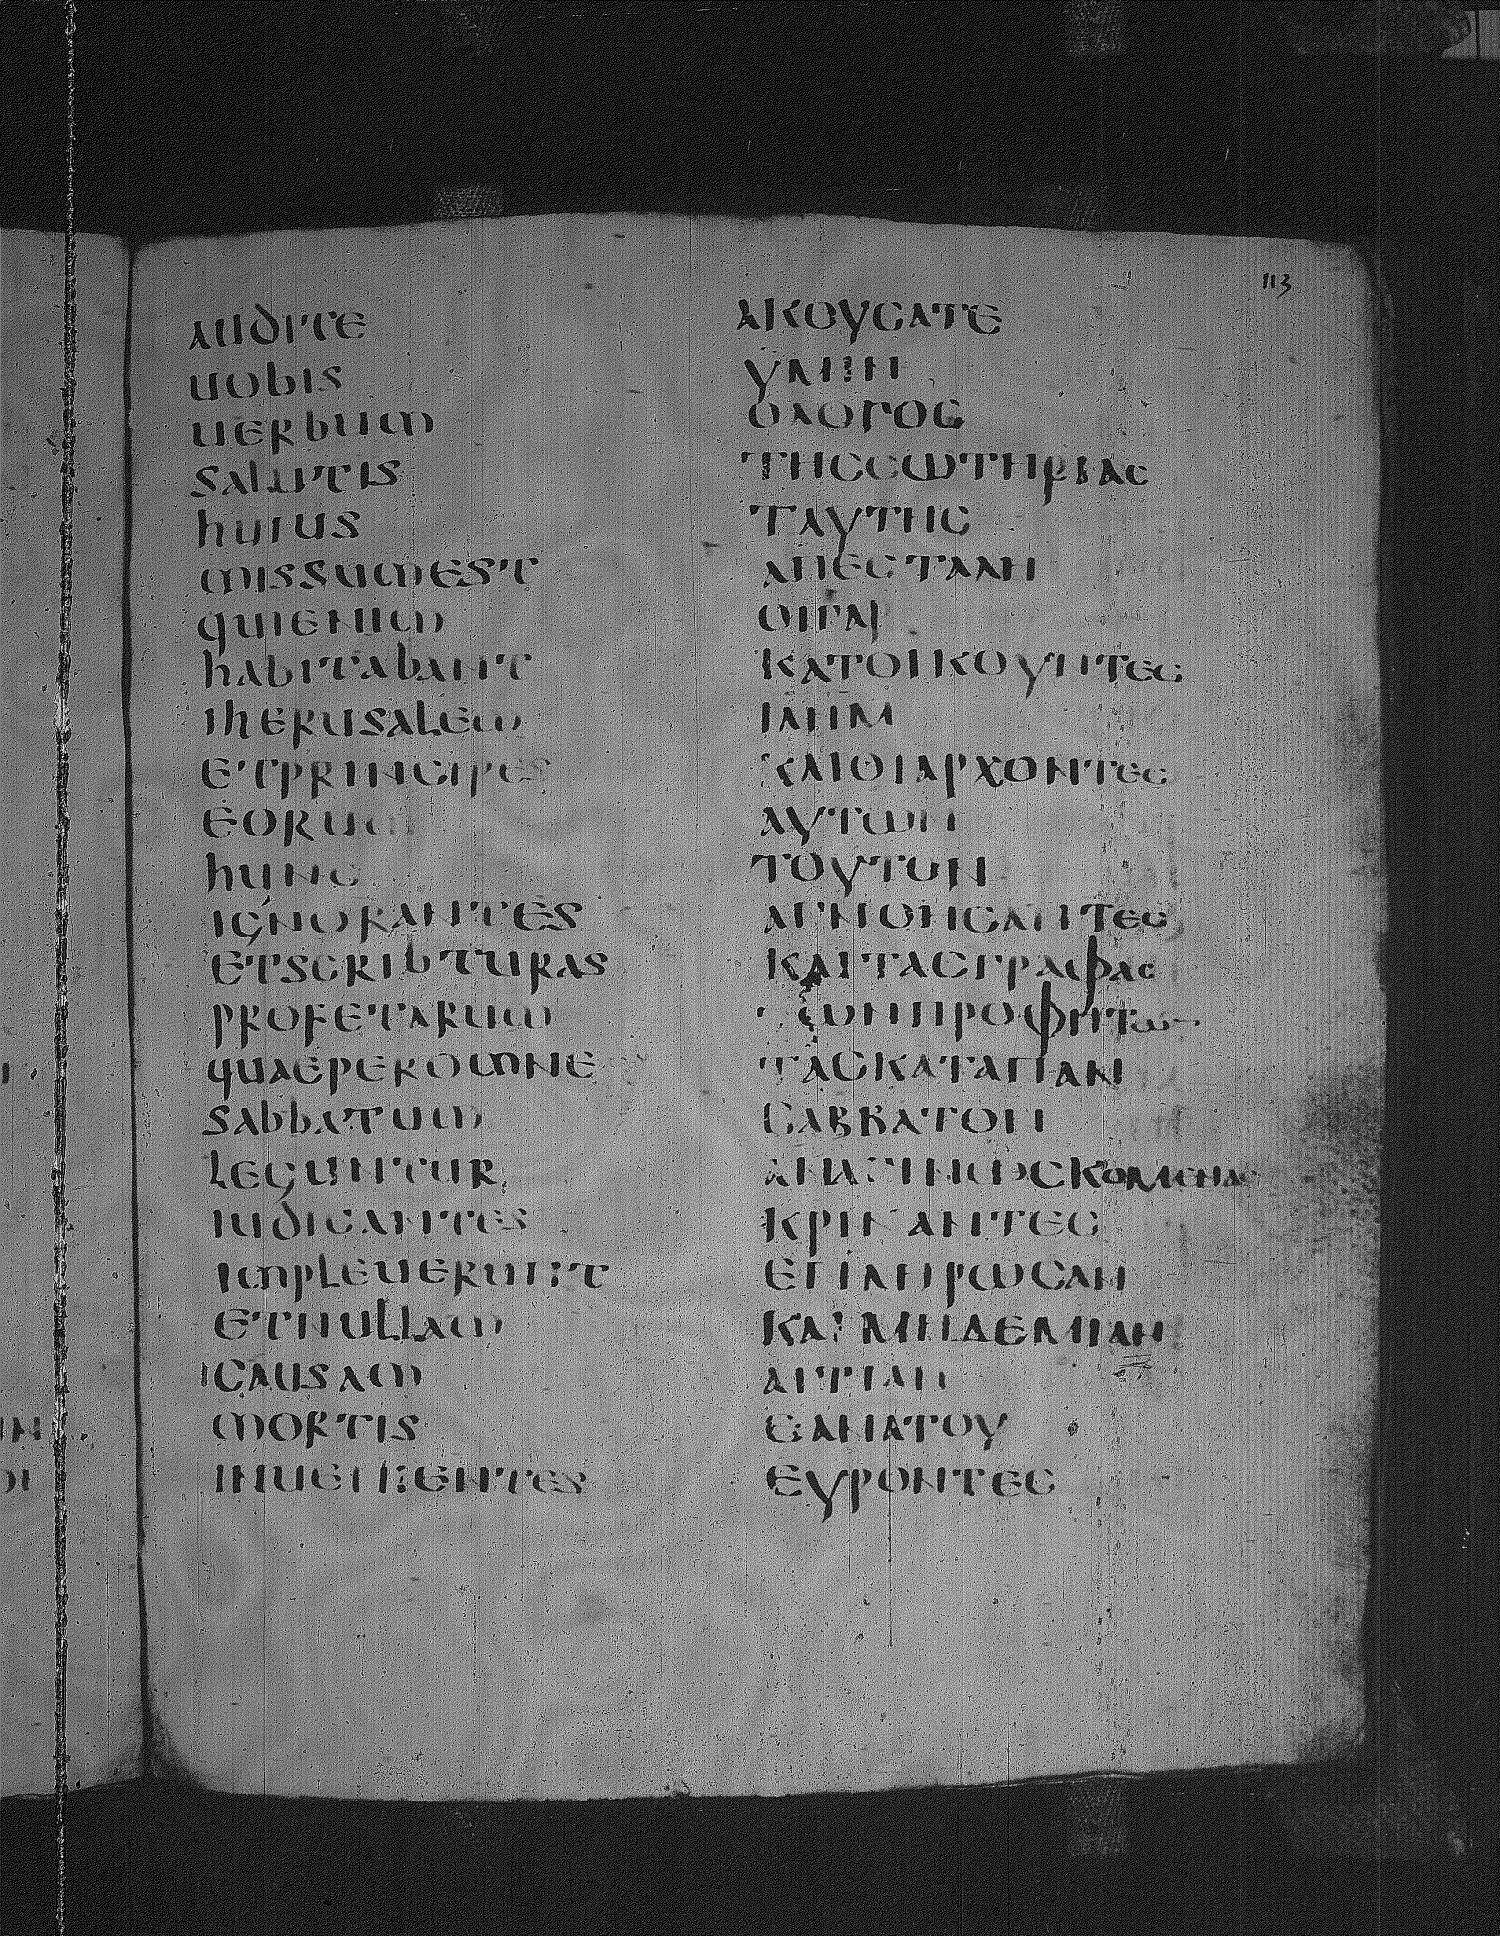 113
audite
uobis
uerbum
salutis
huius
missumest
quienim
habitabant
iherusalem
etprincipes
eorum
hunc
ignorantes
etscribturas
profetarum
quaeperomne
sabbatum
leguntur
iudicantes
impleuerunt
etnullam
causam
mortis
inuenientes
ΑΚΟΥСΑΤΕ
ΥΜΙΝ
ΟΛΟΓΟС
ΤΗССΩΤΗΡΙΑС
ΤΑΥΤΗС
ΑΠΕСΤΑΛΗ
ΟΙΓΑΡ
ΚΑΤΟΙΚΟΥΝΤΕС
ΙΛΗΜ
ΚΑΙΟΙΑΡΧΟΝΤΕС
ΑΥΤΩΝ
ΤΟΥΤΟΝ
ΑΓΝΟΗСΑΝΤΕС
ΚΑΙΤΑСΓΡΑΦΑС
ΤΩΝΠΡΟΦΗΤΩ–
ΤΑСΚΑΤΑΠΑΝ
САΒΒΑΤΟΝ
ΑΝΑΓΙΝΩСΚΟΜΕΝΑС
ΚΡΙΝΑΝΤΕС
ΕΠΛΗΡΩСΑΝ
ΚΑΙΜΗΔΕΜΙΑΝ
ΑΙΤΙΑΝ
ΘΑΝΑΤΟΥ
ΕΥΡΟΝΤΕС